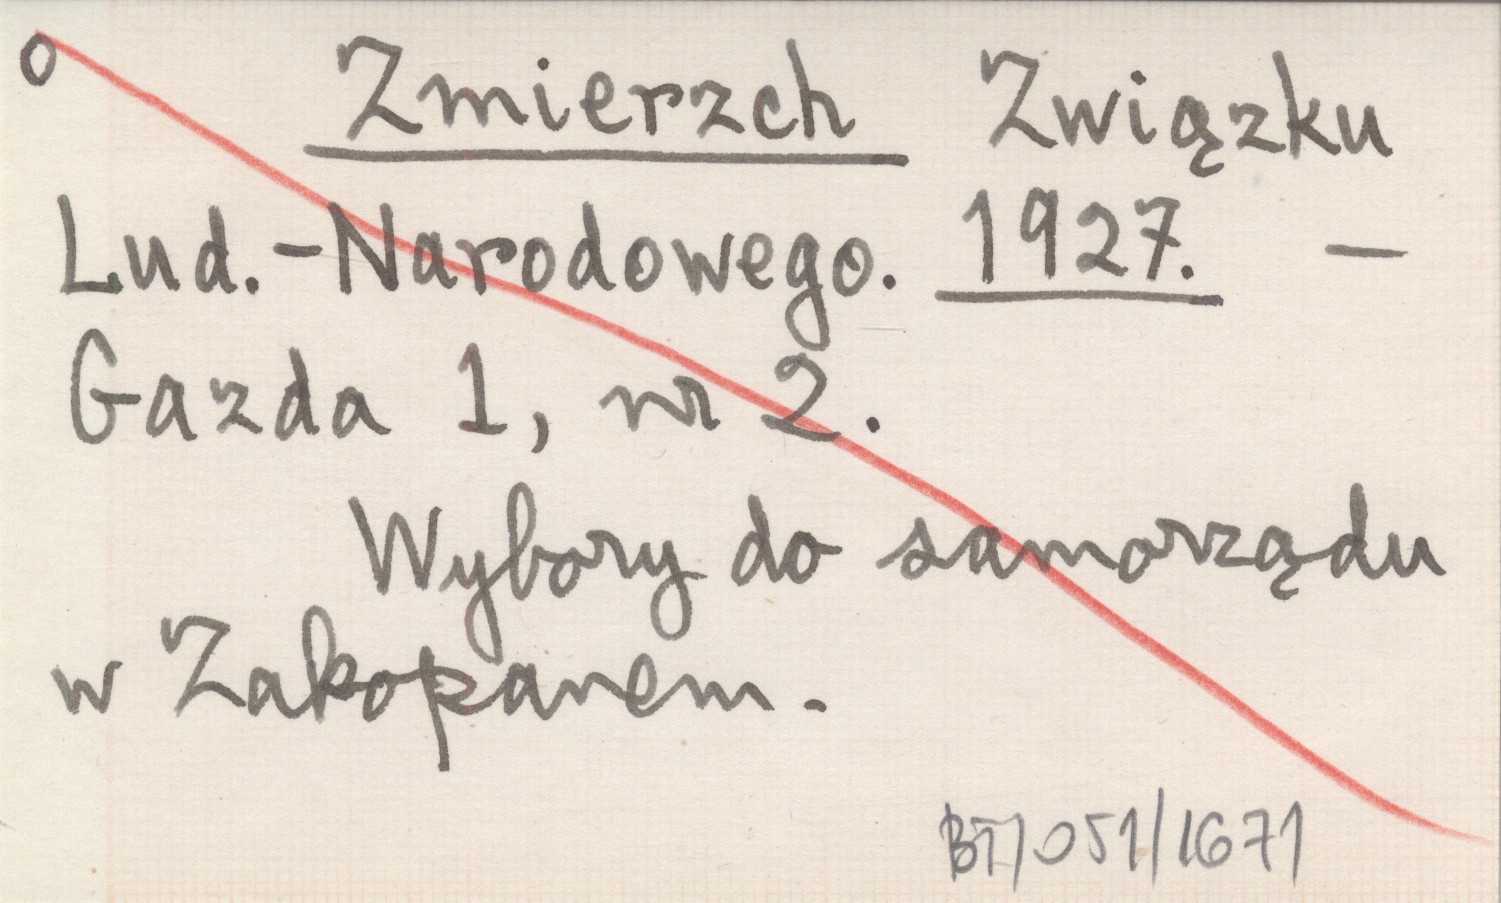 o Zmierzch Związku
Lud.-Narodowego. 1927. —
Gazda 1, nr 2.
Wybory do samorządu
w Zakopanem.
BT/051/1671